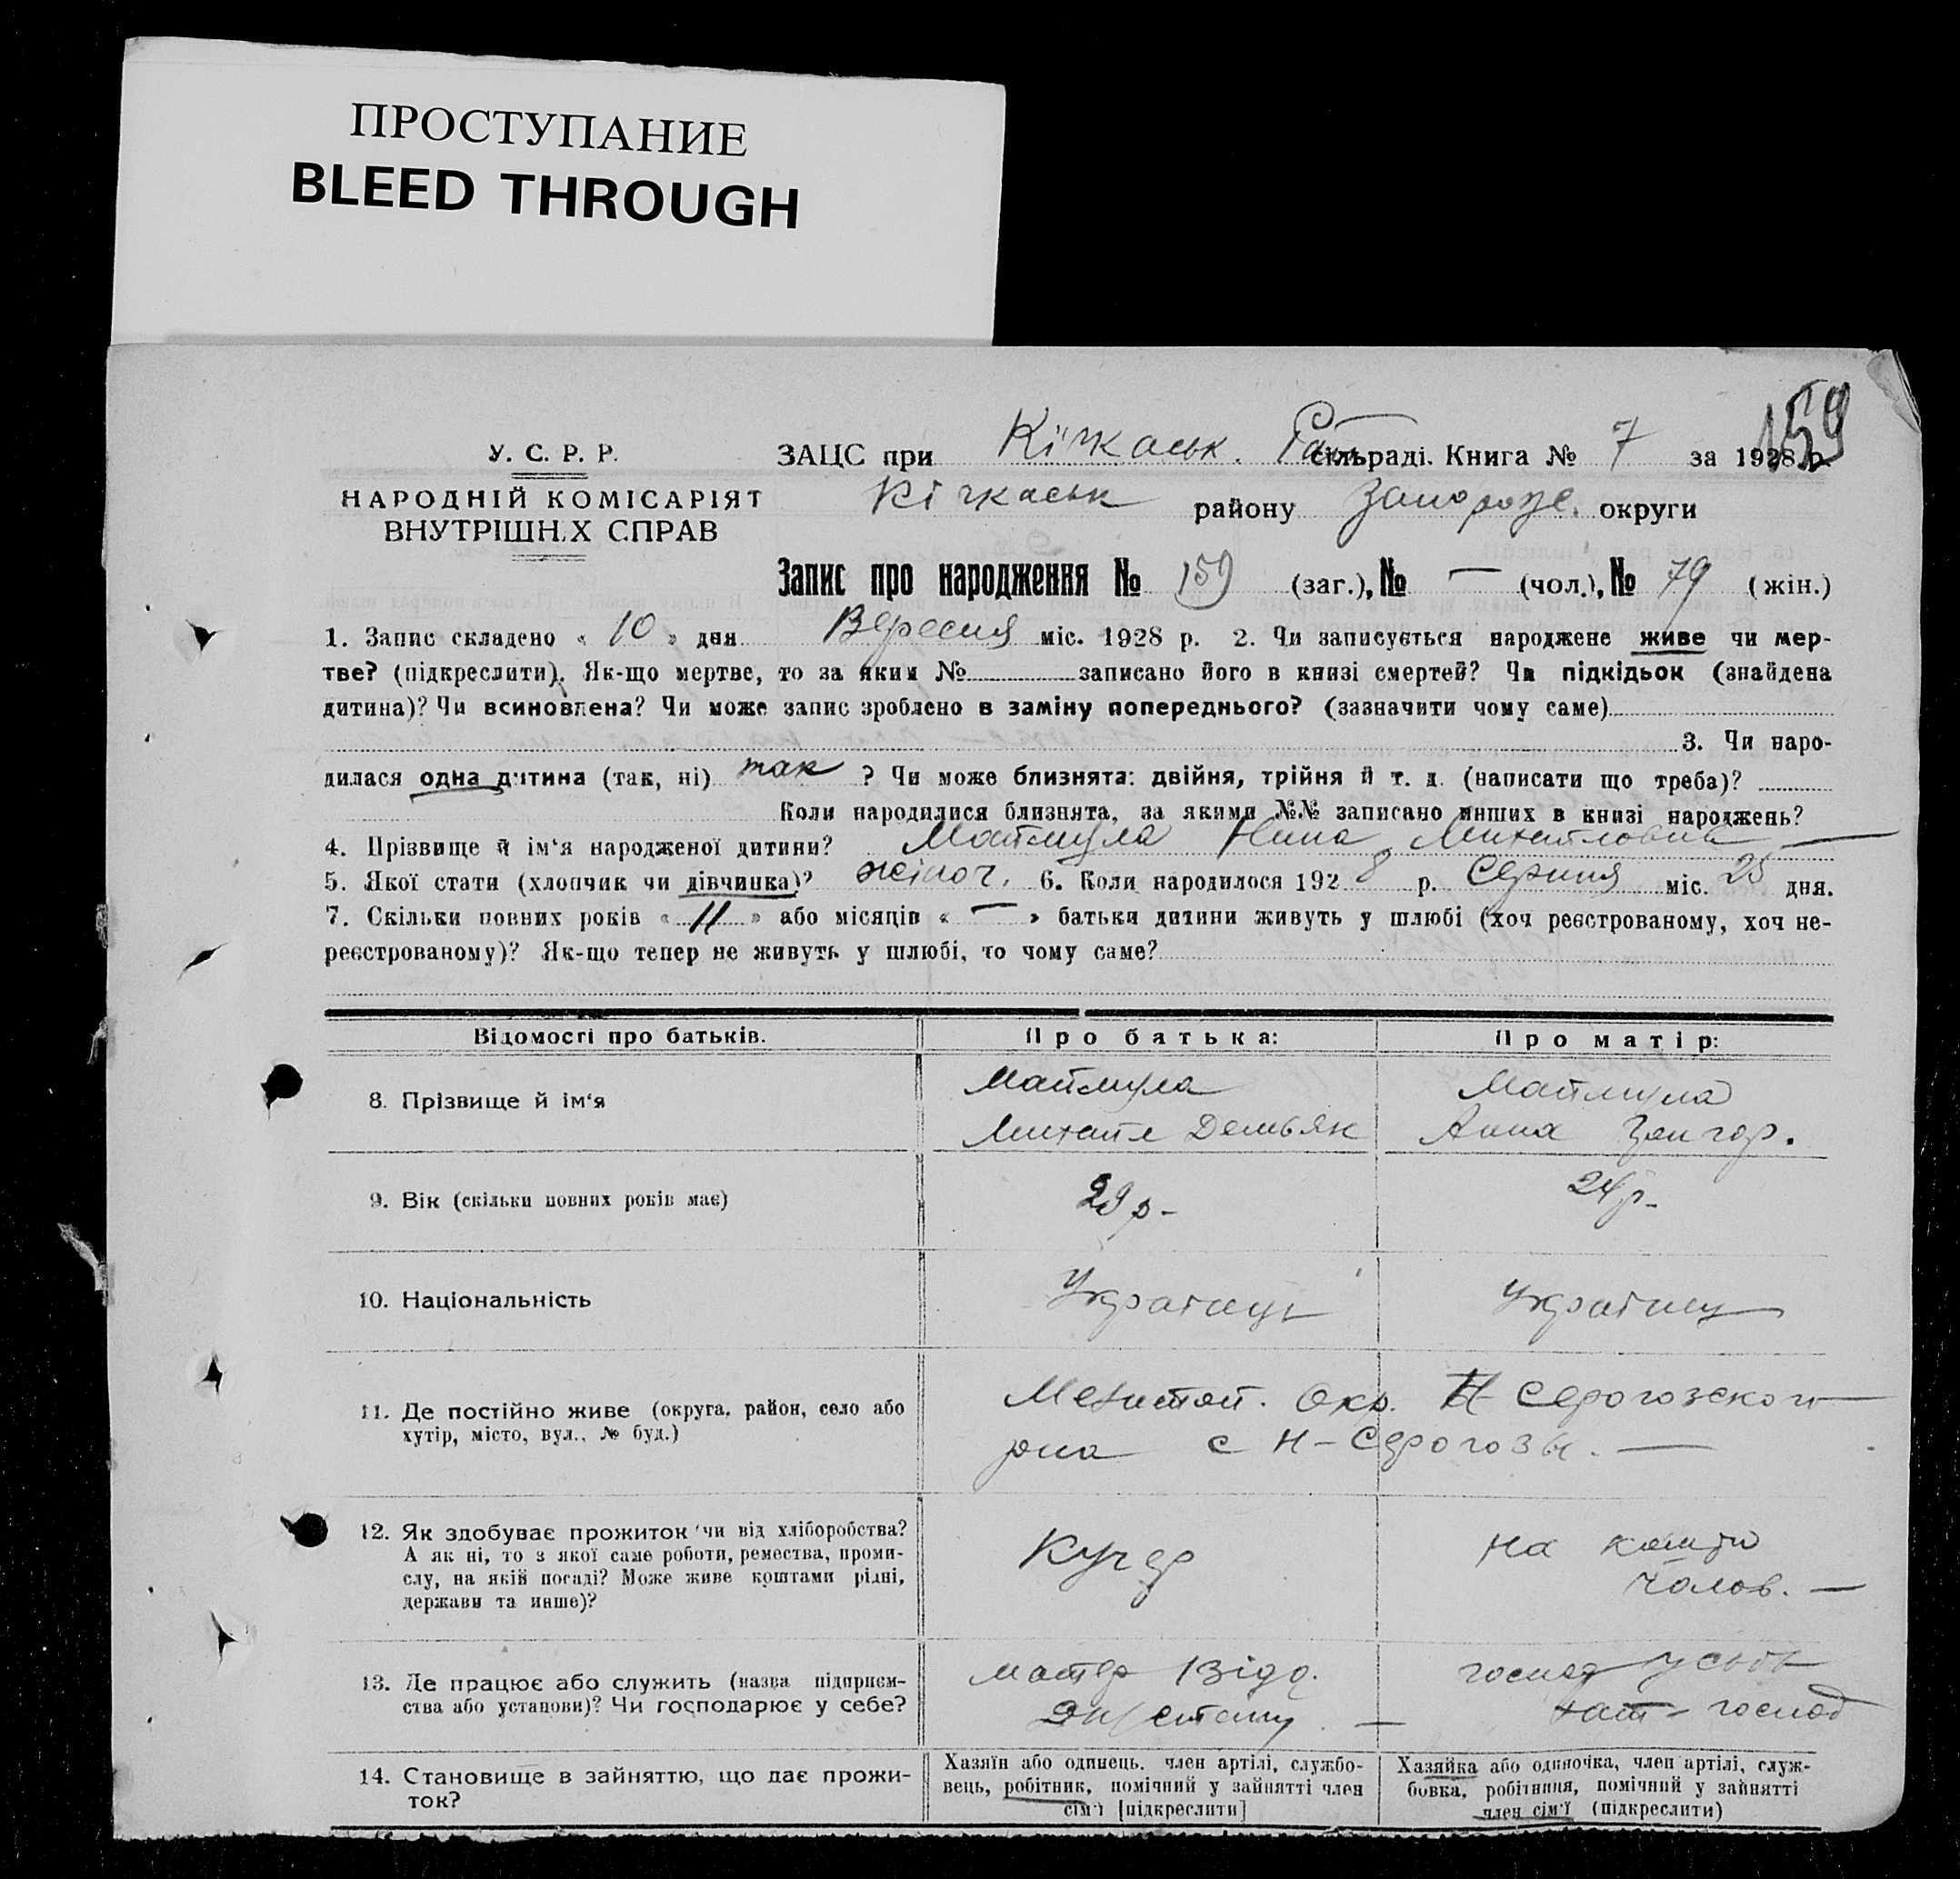 ПРОСТУПАНИЕ
BLEED THROUGH
159
У. С. Р. Р.
НАРОДНІЙ КОМІСАРІЯТ
ВНУТРІШН.Х СПРАВ
ЗАЦС при Кічкаськ. сільраді. Книга № 7 за 1928 р.
Кічкаськ району Запорозс. округи
Запис про народження № 159 (заг.), № — (чол.), № 79 (жін.)
1. Запис складено « 10 » дня Вересня міс. 1928 р. 2. Чи записується народжене живе чи мер-
тве? (підкреслити). Як-що мертве, то за яким № записано його в книзі смертей? Чи підкідьок (знайдена
дитина)? Чи всиновлена? Чи може запис зроблено в заміну попереднього? (зазначити чому саме)
3. Чи наро-
дилася одна дитина (так, ні) так ? Чи може близнята: двійня, трійня й т. д. (написати що треба)?
Коли народилися близнята, за якими №№ записано инших в книзі народжень?
4. Прізвище й ім‘я народженої дитини? Маймула Нина Михайловна —
5. Якої стати (хлопчик чи дівчинка)? жіноч. 6. Коли народилося 1928 р. Серпня міс. 25 дня.
7. Скільки повних років « 11 » або місяців « — » батьки дитини живуть у шлюбі (хоч реєстрованому, хоч не-
реєстрованому)? Як-що тепер не живуть у шлюбі, то чому саме?
Відомості про батьків.
Про батька:
Про матір:
8. Прізвище й ім‘я
Маймула
Михайл Демьян
Маймула
Анна
9. Вік (скільки повних років має)
29 р-
24 р-
10. Національність
Украінць
Украінц
11. Де постійно живе (округа, район, село або
хутір, місто, вул., № буд.)
Мелитоп. Окр. Н Серогозского
рна с Н-Серогозы. —
12. Як здобуває прожиток чи від хліборобства?
А як ні, то з якої саме роботи, ремества, проми-
слу, на якій посаді? Може живе коштами рідні,
держави та инше)?
Кучер
на кошти
чолов. —
13. Де працює або служить (назва підприєм-
ства або установи)? Чи господарює у себе?
матер відд.
—
господ
господ
14. Становище в зайняттю, що дає прожи-
ток?
Хазяїн або одинець, член артілі, службо-
вець, робітник, помічний у зайнятті член
сім‘ї [підкреслити]
Хазяйка або одиночка, член артілі, служ-
бовка, робітниця, помічний у зайнятті
член сім‘ї (підкреслити)